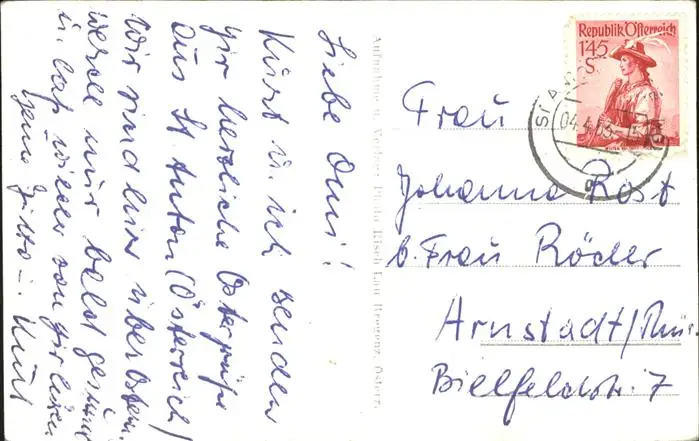 Liebe Omi!
Kurt u. ich senden
Dir herzliche Ostergrüße
aus St. Anton (Österreich)
Wir sind hier über Ostern.
werde nur bald gesund
u. laß wieder von Dir hören
Kurt
Republik Österreich
1'45
S
04.4.
Frau
Johanna Rost
b. Frau Röder
Arnstadt/Thür.
Bielfeldstr. 7